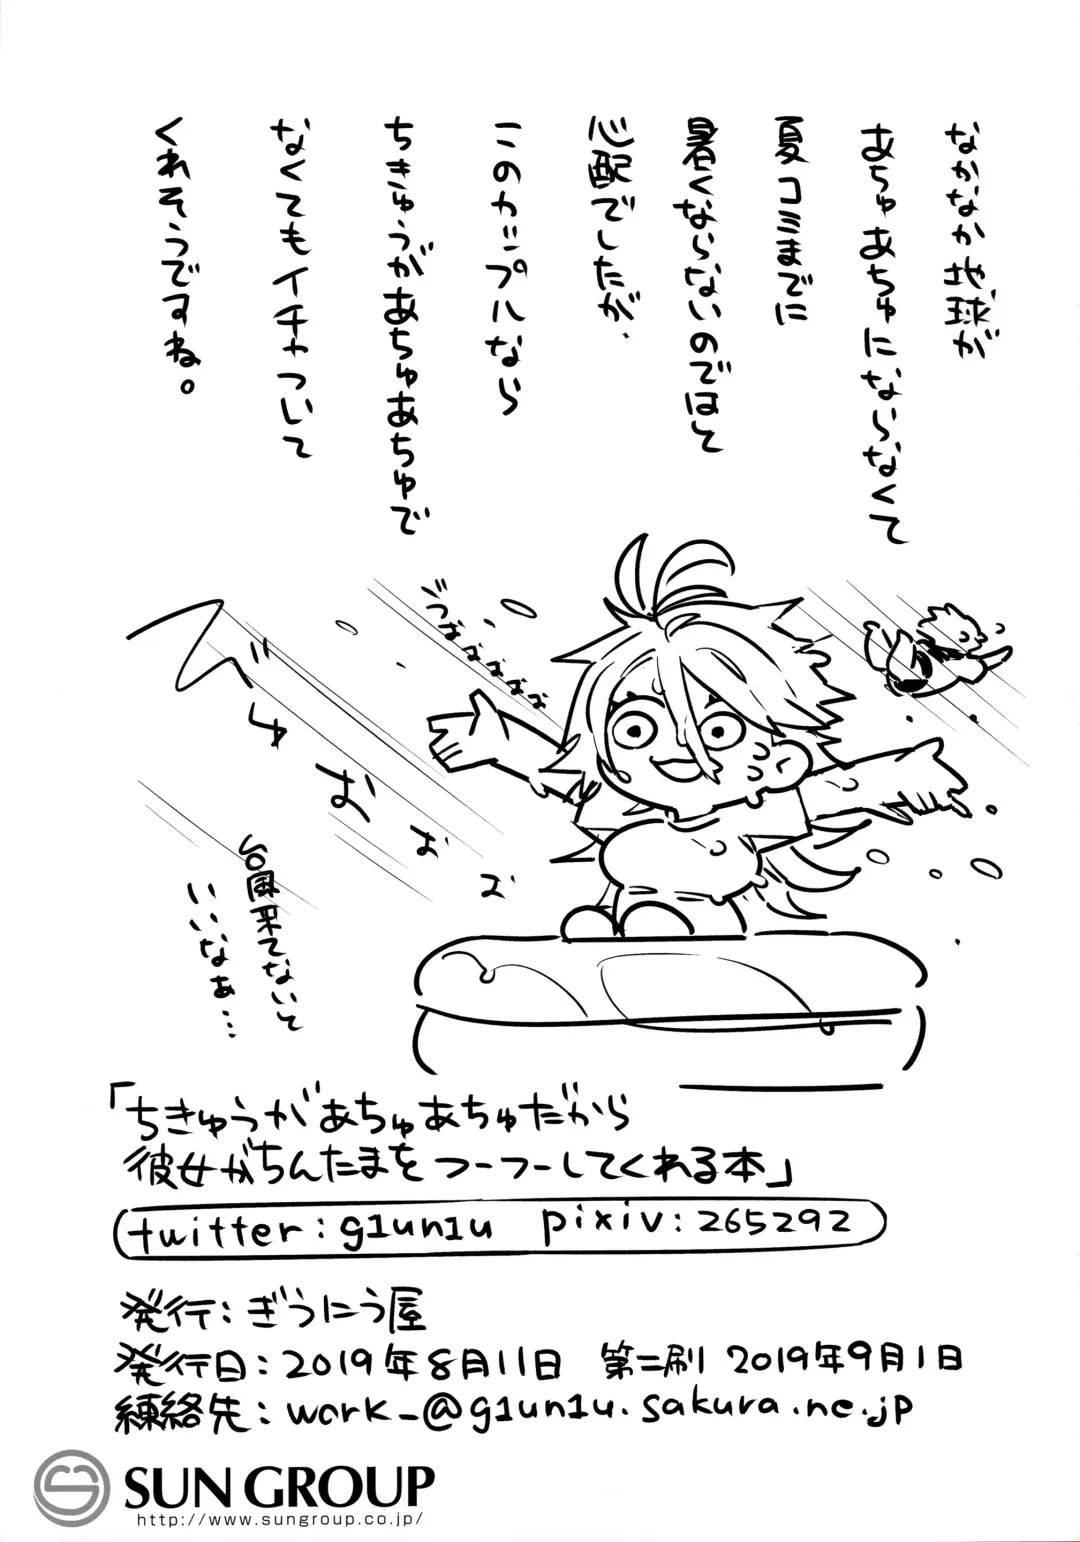 なかなか地球が
あちゅあちゅにならなくて
夏コミまでに
暑くならないのではと
心配でしたが、
このカップルなら
ちきゅうがあちゅあちゅで
なくてもイチャついて
くれそうですね。
づなななななな
びゅおおお
So風来てないと
いいなぁ…
「ちきゅうがあちゅあちゅだから
彼女がちんたまをフーフーしてくれる本」
twitter:g1un1u pixiv:265292
発行:ぎうにう屋
発行日:2019年8月11日 第二刷 2019年9月1日
練絡先:work_@g1un1u.sakura.ne.jp
SUN GROUP
http://www.sungroup.co.jp/